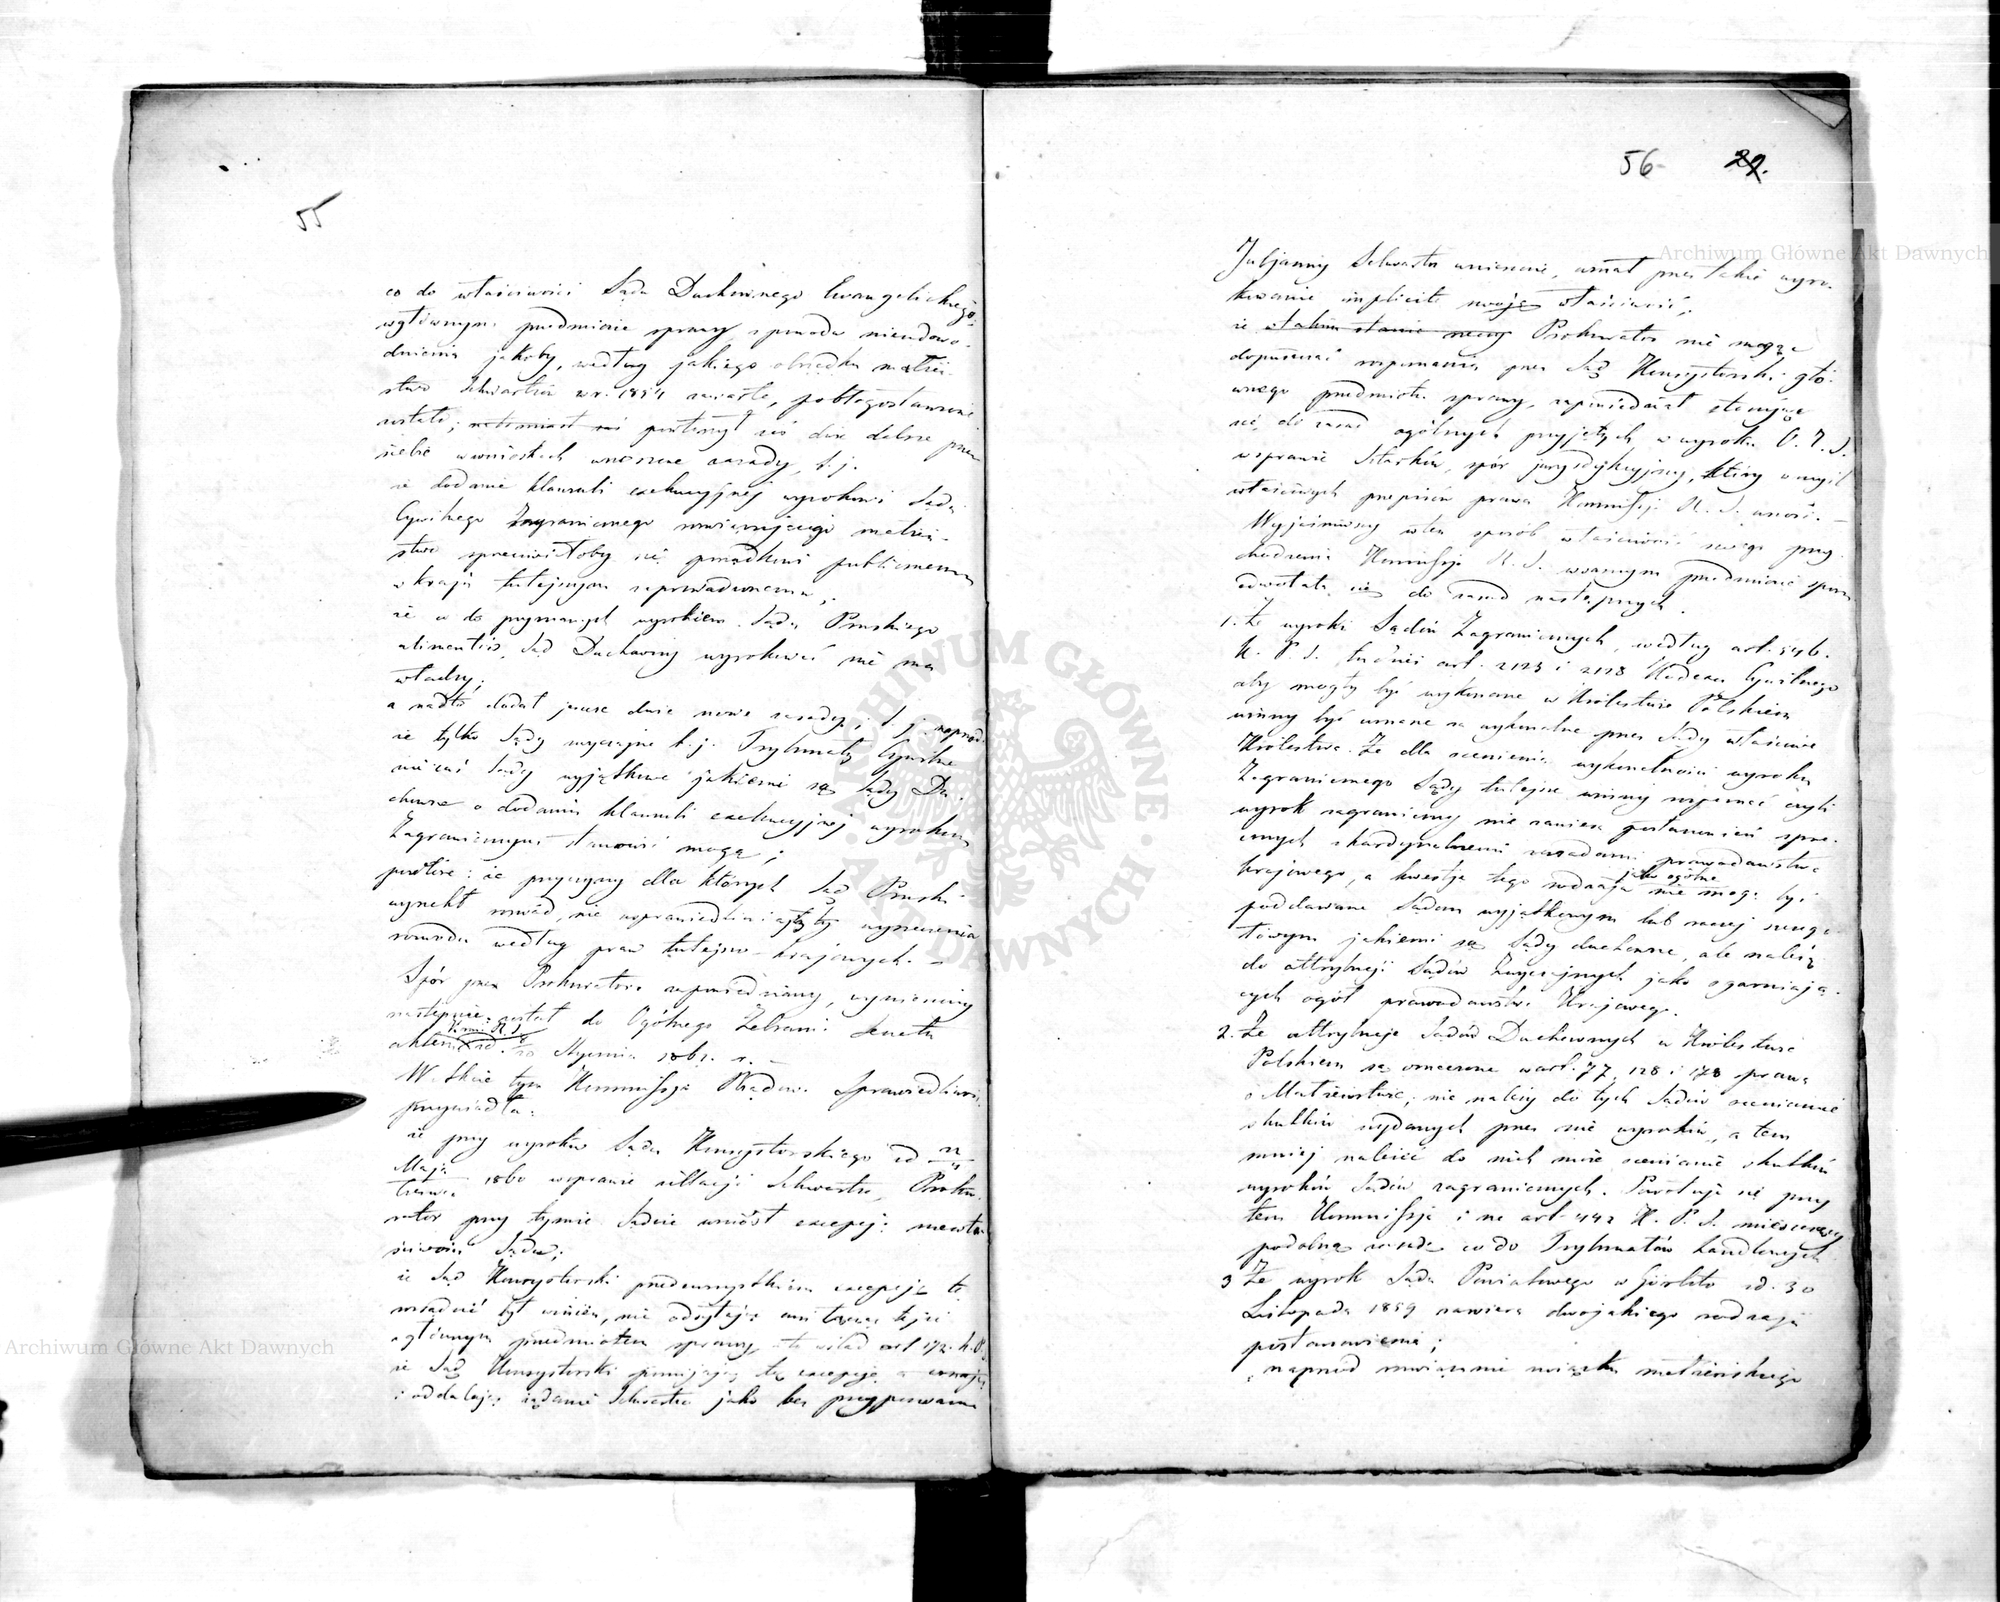 55
co do właściwości Sądu Duchownego Ewangelickiego
w głównym przedmiocie sprawy, z powodu nieudowo-
dnienia jakoby, według jakiego obrządku małżeń-
stwo Schwartzów w r. 1854 zawarte, pobłogosławione
zostało; natomiast zaś powtórzył też dwie dalsze przez
siebie w wnioskach wniesione zasady, t. j.
że dodanie klauzuli exekucyjnej wyrokowi Sądu
Cywilnego Zagranicznego rozwiązującego małżeń-
stwo sprzeciwiałoby się porządkowi publicznemu
w kraju tutejszym zaprowadzonemu;
że co do przyznanych wyrokiem Sądu Pruskiego
alimentów, Sąd Duchowny wyrokować nie ma
władzy;
a nadto dodał jeszcze dwie nowe zasady; t. j. naprzód
że tylko Sądy zwyczajne t. j. Trybunały Cywilne
nie zaś Sądy wyjątkowe jakiemi są Sądy Du-
chowne o dodaniu klauzuli exekucyjnej wyrokom
Zagranicznym stanowić mogą;
powtóre: że przyczyny dla których Sąd Pruski
wyrzekł rozwód, nie usprawiedliwiałyby wyrzeczenia
rozwodu według praw tutejszo-krajowych. –
Spór przez Prokuratora zapowiedziany, wyniesiony
następnie został do Ogólnego Zebrania Senatu
aktem Kom. R. S. od 8/20 Stycznia 1862 r. –
W akcie tym Kommissya Rządowa Sprawiedliwości
przywiodła:
że przy wyroku Sądu Konsystorskiego od
Maja
Czerwca 1860 w sprawie illacji Schwartza, Proku-
rator przy tymże Sądzie wniósł excepcją niewła-
ściwości Sądu;
że Sąd Konsystorski przedewszystkiem excepcją tę
rozsądzić był winien, nie odsyłając ani łącząc tejże
z głównym przedmiotem sprawy, a to w ślad art 172. K. P. S.
że Sąd Konsystorski pomijając tę excepcję a uznając
i oddalając żądanie Schwartza jako bez przypozwania
56 22.
Juljanny Schwartz uczynione, uznał przez takie wyro-
kowanie implicite swoją właściwość;
że w takim stanie rzeczy Prokurator nie mogąc
dopuszczać rozpoznania przez Sąd Konsystorski głó-
wnego przedmiotu sprawy, zapowiedział stosując
się do zasad ogólnych przyjętych w wyroku O. Z. S.
w sprawie Starków, spór jurysdykcyjny, który w myśl
właściwych przepisów prawa Kommissja R. S. wnosi. –
Wyjaśniwszy w ten sposób właściwość swego przy-
chodzenia Kommissja R. S. w samym przedmiocie sporu
odwołała się do zasad następnych.
1. Że wyroki Sądów Zagranicznych, według art. 546.
K. P. S. tudzież art. 2123 i 2128 Kodexu Cywilnego
aby mogły być wykonane w Królestwie Polskiem
winny być uznane za wykonalne przez Sądy właściwe
Królestwa. Że dla ocenienia wykonalności wyroku
Zagranicznego Sądy tutejsze winny rozpoznać czyli
wyrok zagraniczny nie zawiera postanowień sprze-
cznych z kardynalnemi zasadami prawodawstwa
krajowego, a kwestja tego rodzaju jako ogólne nie mogą być
poddawane Sądom wyjątkowym lub raczej szczegó-
łowym jakiemi są Sądy duchowne, ale należą
do attrybucji Sądów Zwyczajnych jako ogarniają-
cych ogół prawodawstwa Krajowego.
2. Że attrybucje Sądów Duchownych w Królestwie
Polskiem są oznaczone w art. 77, 128 i 178 prawa
o Małżeństwie; nie należy do tych Sądów ocenianie
skutków wydanych przez nie wyroków, a tem
mniej należeć do nich może ocenianie skutków
wyroków Sądów zagranicznych. Powołuje się przy
tem Kommissja i na art 442 K. P. S. mieszczący
podobną zasadę co do Trybunałów handlowych
3 Że wyrok Sądu Powiatowego w Görlitz od. 30
Listopada 1859 zawiera dwojakiego rodzaju
postanowienia;
naprzód rozwiązanie związku małżeńskiego